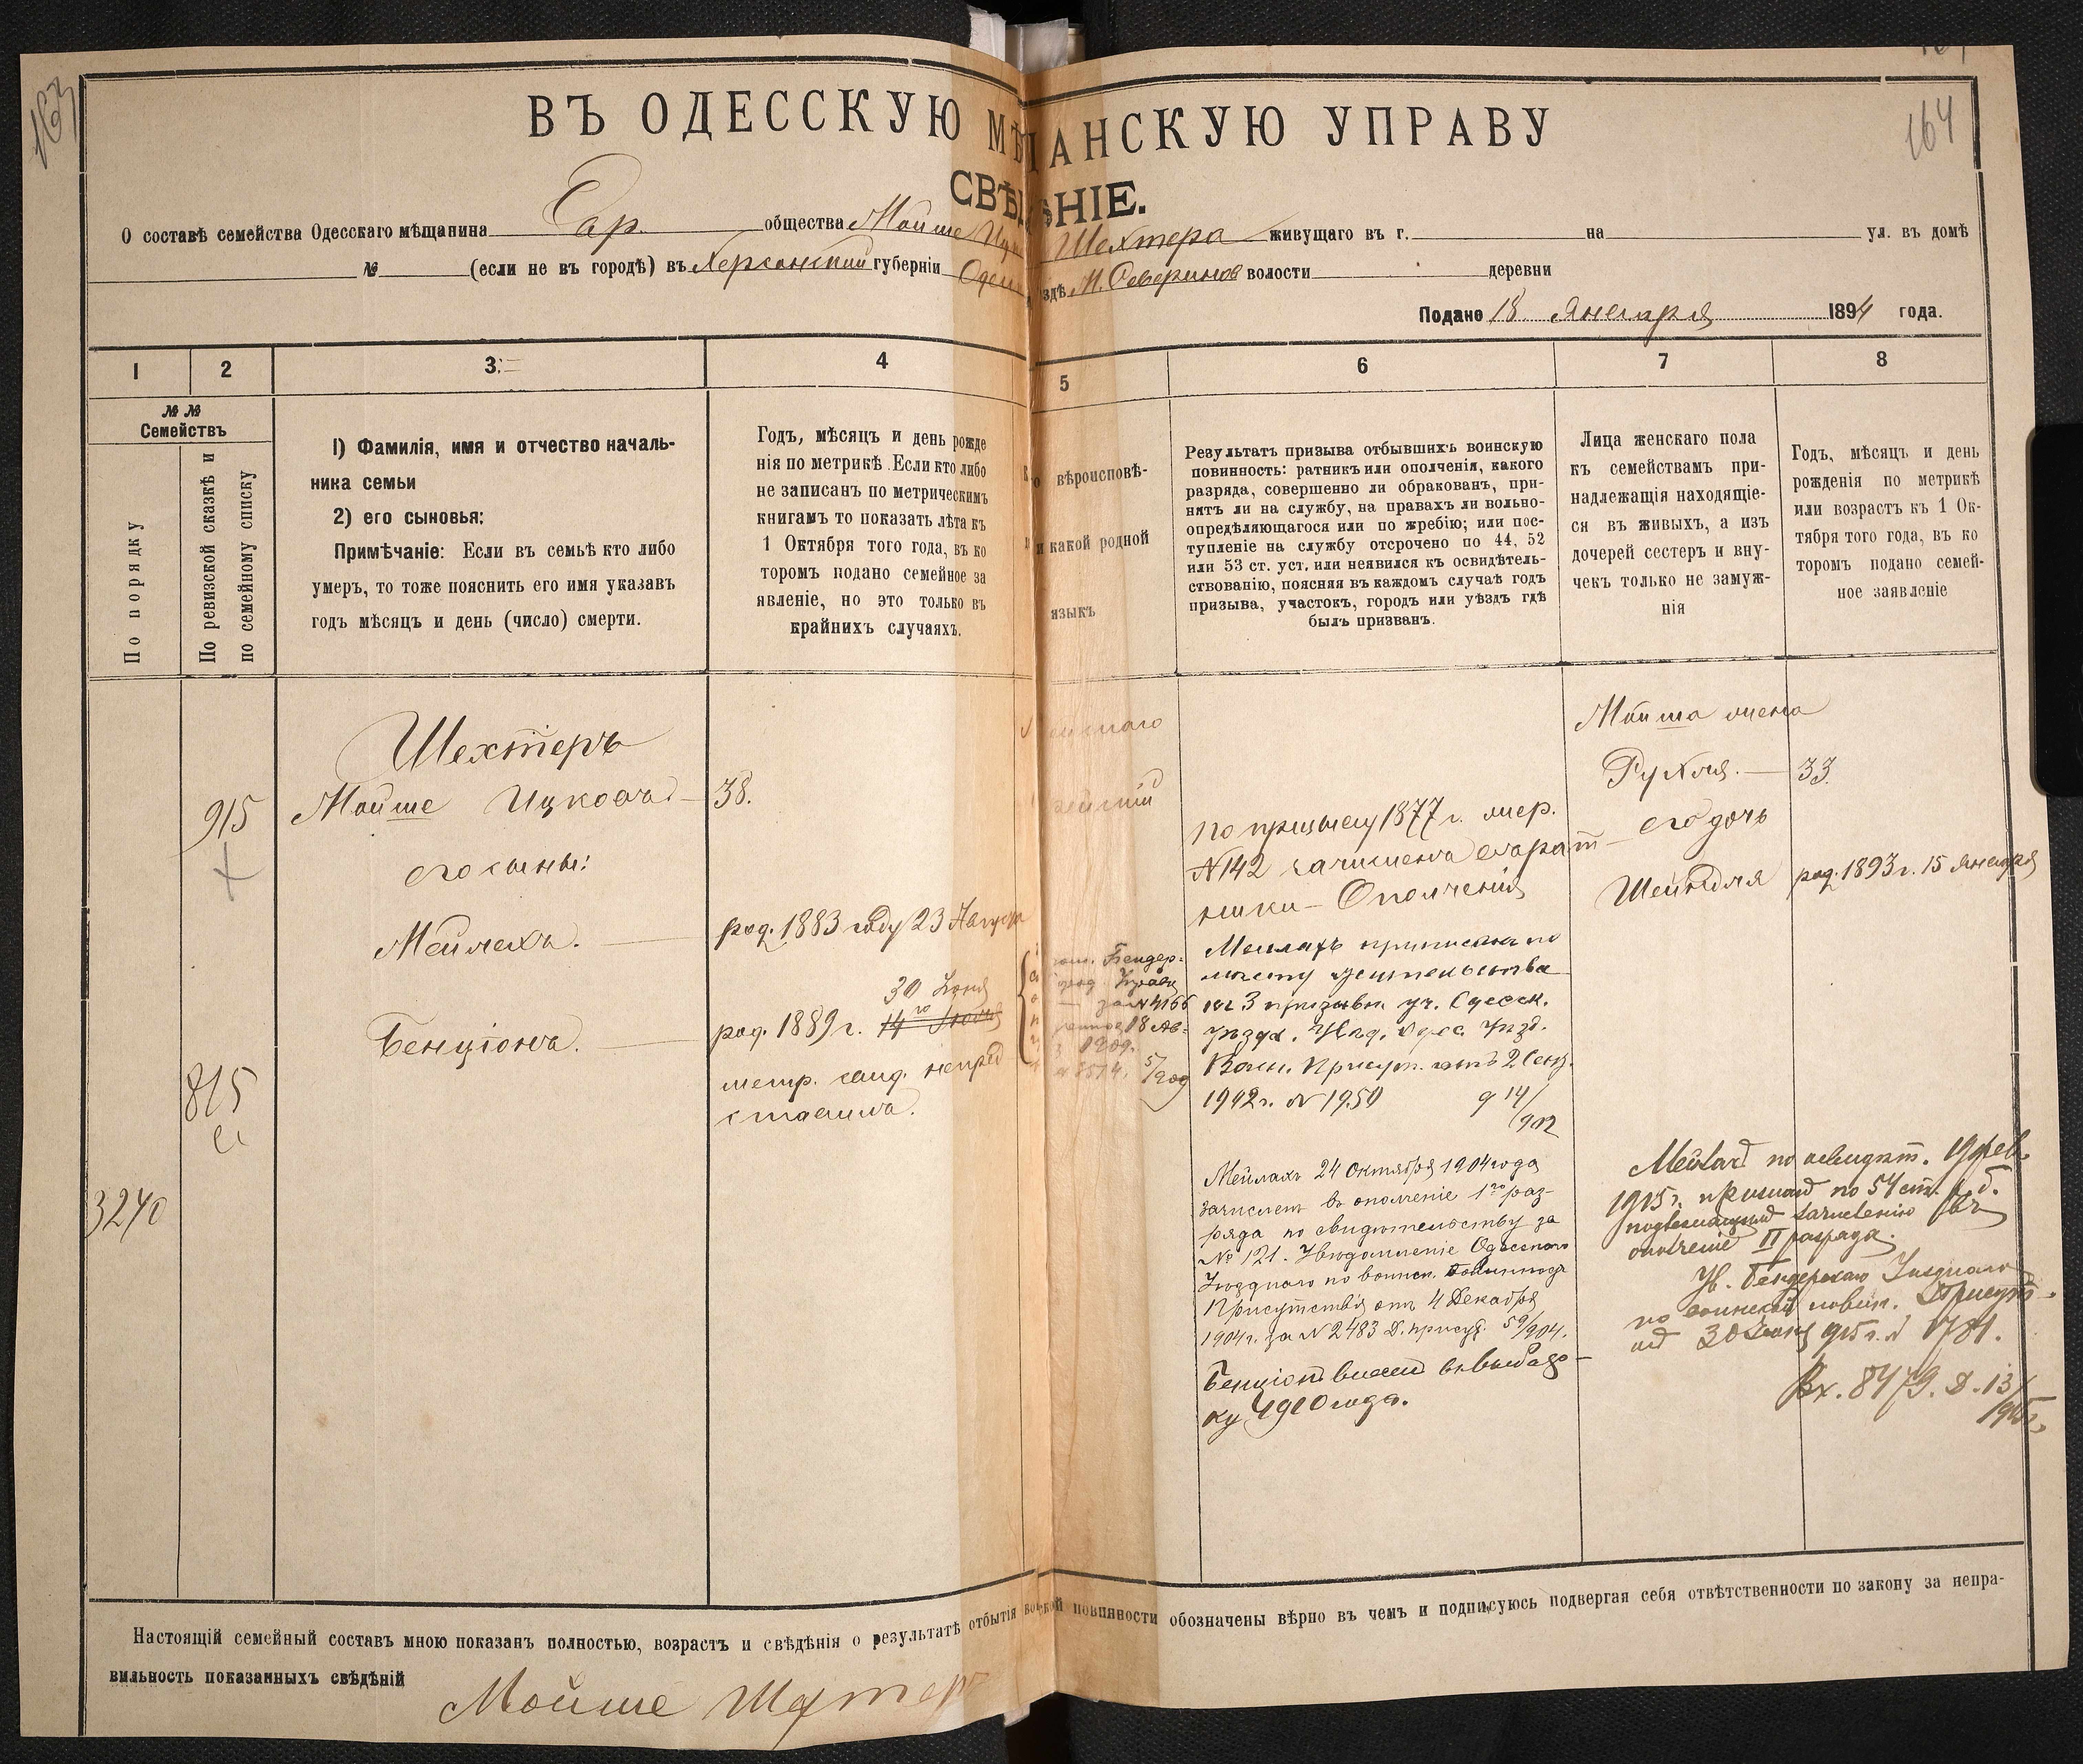 163
164
ВЪ ОДЕССКУЮ МѢЩАНСКУЮ УПРАВУ
СВѢДѢНІЕ.
О составѣ семейства Одесскаго мѣщанина Евр. общества Мойше Ицк Шехтера живущаго въ г. на ул. въ домѣ
№ (если не въ городѣ) въ Херсонской губерніи Одес здѣ М. Северинов волости деревни
Подано 18 Января 1894 года.
1 2 3 4 5 6 7 8
№ №
Семействъ
По порядку
По ревизской сказкѣ и
по семейному списку
1) Фамилія, имя и отчество началь-
ника семьи
2) его сыновья:
Примѣчаніе: Если въ семьѣ кто либо
умеръ, то тоже пояснить его имя указавъ
годъ мѣсяцъ и день (число) смерти.
Годъ, мѣсяцъ и день рожде
нія по метрикѣ. Если кто либо
не записанъ по метрическимъ
книгамъ то показать лѣта къ
1 Октября того года, въ ко
торомъ подано семейное за
явленіе, но это только въ
крайнихъ случаяхъ.
вѣроисповѣ-
и какой родной
языкъ
Результатъ призыва отбывшихъ воинскую
повинность: ратникъ или ополченія, какого
разряда, совершенно ли обракованъ, при-
нятъ ли на службу, на правахъ ли вольно-
опредѣляющагося или по жребію; или пос-
тупленіе на службу отсрочено по 44, 52
или 53 ст. уст. или неявился къ освидѣтель-
ствованію, поясняя въ каждомъ случаѣ годъ
призыва, участокъ, городъ или уѣздъ гдѣ
былъ призванъ.
Лица женскаго пола
къ семействамъ при-
надлежащія находящіе-
ся въ живыхъ, а изъ
дочерей сестеръ и вну-
чекъ только не замуж-
нія
Годъ, мѣсяцъ и день
рожденія по метрикѣ
или возрастъ къ 1 Ок-
тября того года, въ ко
торомъ подано семей-
ное заявленіе
Шехтеръ
915 Мойше Ицковъ 38.
его сыны:
Мейлехъ. род. 1883 году 23 Августа
30 Іюня
Бенціонъ. род. 1889 г. 14го Іюля
метр. свид. непред
ставилъ.
815
3240
Бендер-
18 Ав-
1909.
по призыву 1877 г. жер.
№ 142 зачисленъ въ рат-
ники Ополченія
Мейлахъ приписанъ по
мѣсту жительства
къ 3 призывн. уч. Одесск.
уѣзда. Увѣд. Одес. Уѣзд.
Воин. Присут. отъ 2 Сент.
1902 г. № 1950
914/902
Мейлахъ 24 Октября 1904 года
зачисленъ въ ополченіе 1го раз-
ряда по свидѣтельству за
№ 121. Увѣдомленіе Одесскаго
Уѣзднаго по воинск. повинности
Присутствія отъ 4 Декабря
1904 г. за № 2483 Д. присут. 59/904.
Бенціонъ внесенъ въ
ку 1910 года.
Мойша жена
Рухля. 33.
его дочь
Шейндля род. 1893 г. 15 Января
Мейлахъ по освидѣт. 19 фев.
1915 г. признанъ по 54 ст.
подлежащимъ зачисленію въ
ополченіе II разряда.
Ув. Бендерскаго Уѣзднаго
по воинской повин. Присут.
отъ 30 Іюня 915 г. № 1781.
Вх. 8479. Д. 13/
1915 г.
Настоящій семейный составъ мною показанъ полностью, возрастъ и свѣдѣнія о результатѣ отбытія воской повинности обозначены вѣрно въ чемъ и подписуюсь подвергая себя отвѣтственности по закону за непра-
вильность показанныхъ свѣдѣній
Мойше Шехтеръ